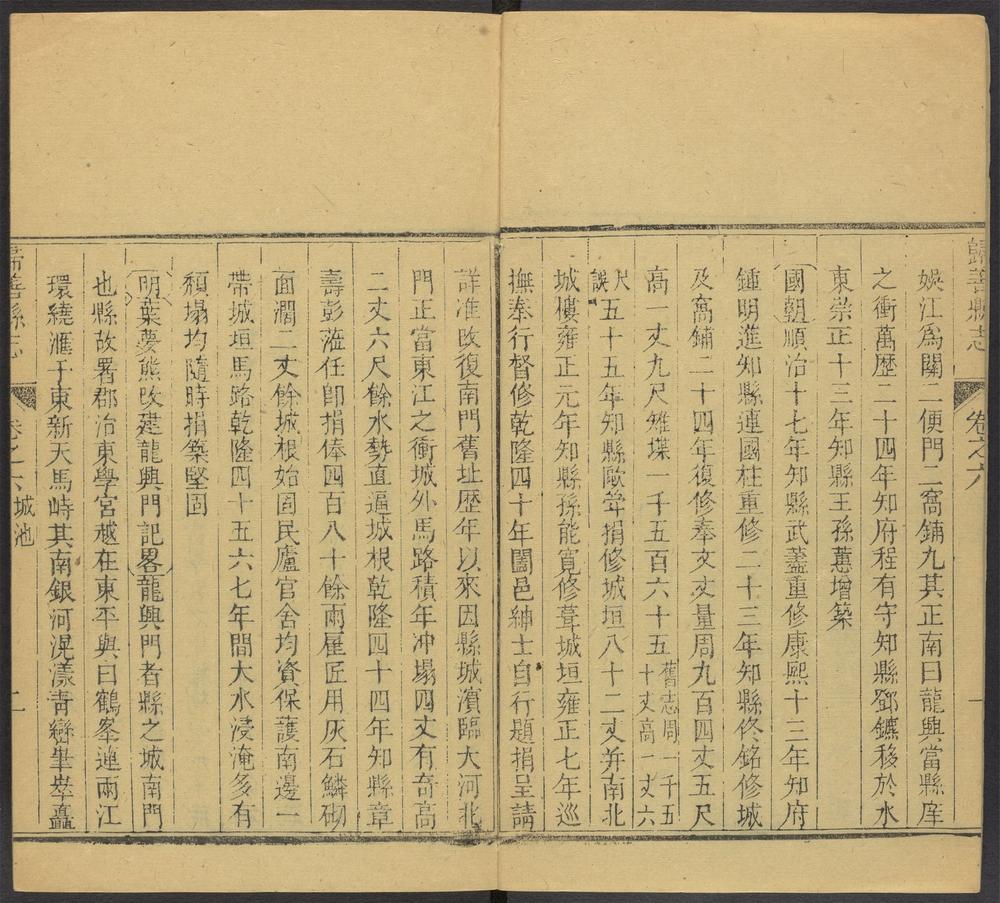 歸善縣志
卷之六
一
娛江爲關二便門二窩鋪九其正南曰龍興當縣庠
之衝萬歷二十四年知府程有守知縣鄧鑣移於水
東崇正十三年知縣王孫蕙增築
國朝順治十七年知縣武蓋重修康熙十三年知府
鍾明進知縣連國柱重修二十三年知縣佟銘修城
及窩鋪二十四年復修奉文丈量周九百四丈五尺
高一丈九尺雉堞一千五百六十五舊志周一千五十丈高一丈六
尺誤五十五年知縣歐㙛捐修城垣八十二丈并南北
城樓雍正元年知縣孫能寬修葺城垣雍正七年巡
撫奉行督修乾隆四十年闔邑紳士自行題捐呈請
詳准改復南門舊址歷年以來因縣城濱臨大河北
門正當東江之衝城外馬路積年冲塌四丈有奇高
二丈六尺餘水勢直逼城根乾隆四十四年知縣章
壽彭蒞任卽捐俸四百八十餘兩雇匠用灰石鱗砌
面濶二丈餘城根始固民廬官舍均資保護南邊一
帶城垣馬路乾隆四十五六七年間大水浸淹多有
頹塌均隨時捐築堅固
明葉夢熊改建龍興門記畧龍興門者縣之城南門
也縣故署郡治東學宮越在東平輿曰鶴峯進兩江
環繞滙于東新天馬峙其南銀河滉漾靑巒崒嵂矗
歸善縣志
卷之六
城池
二